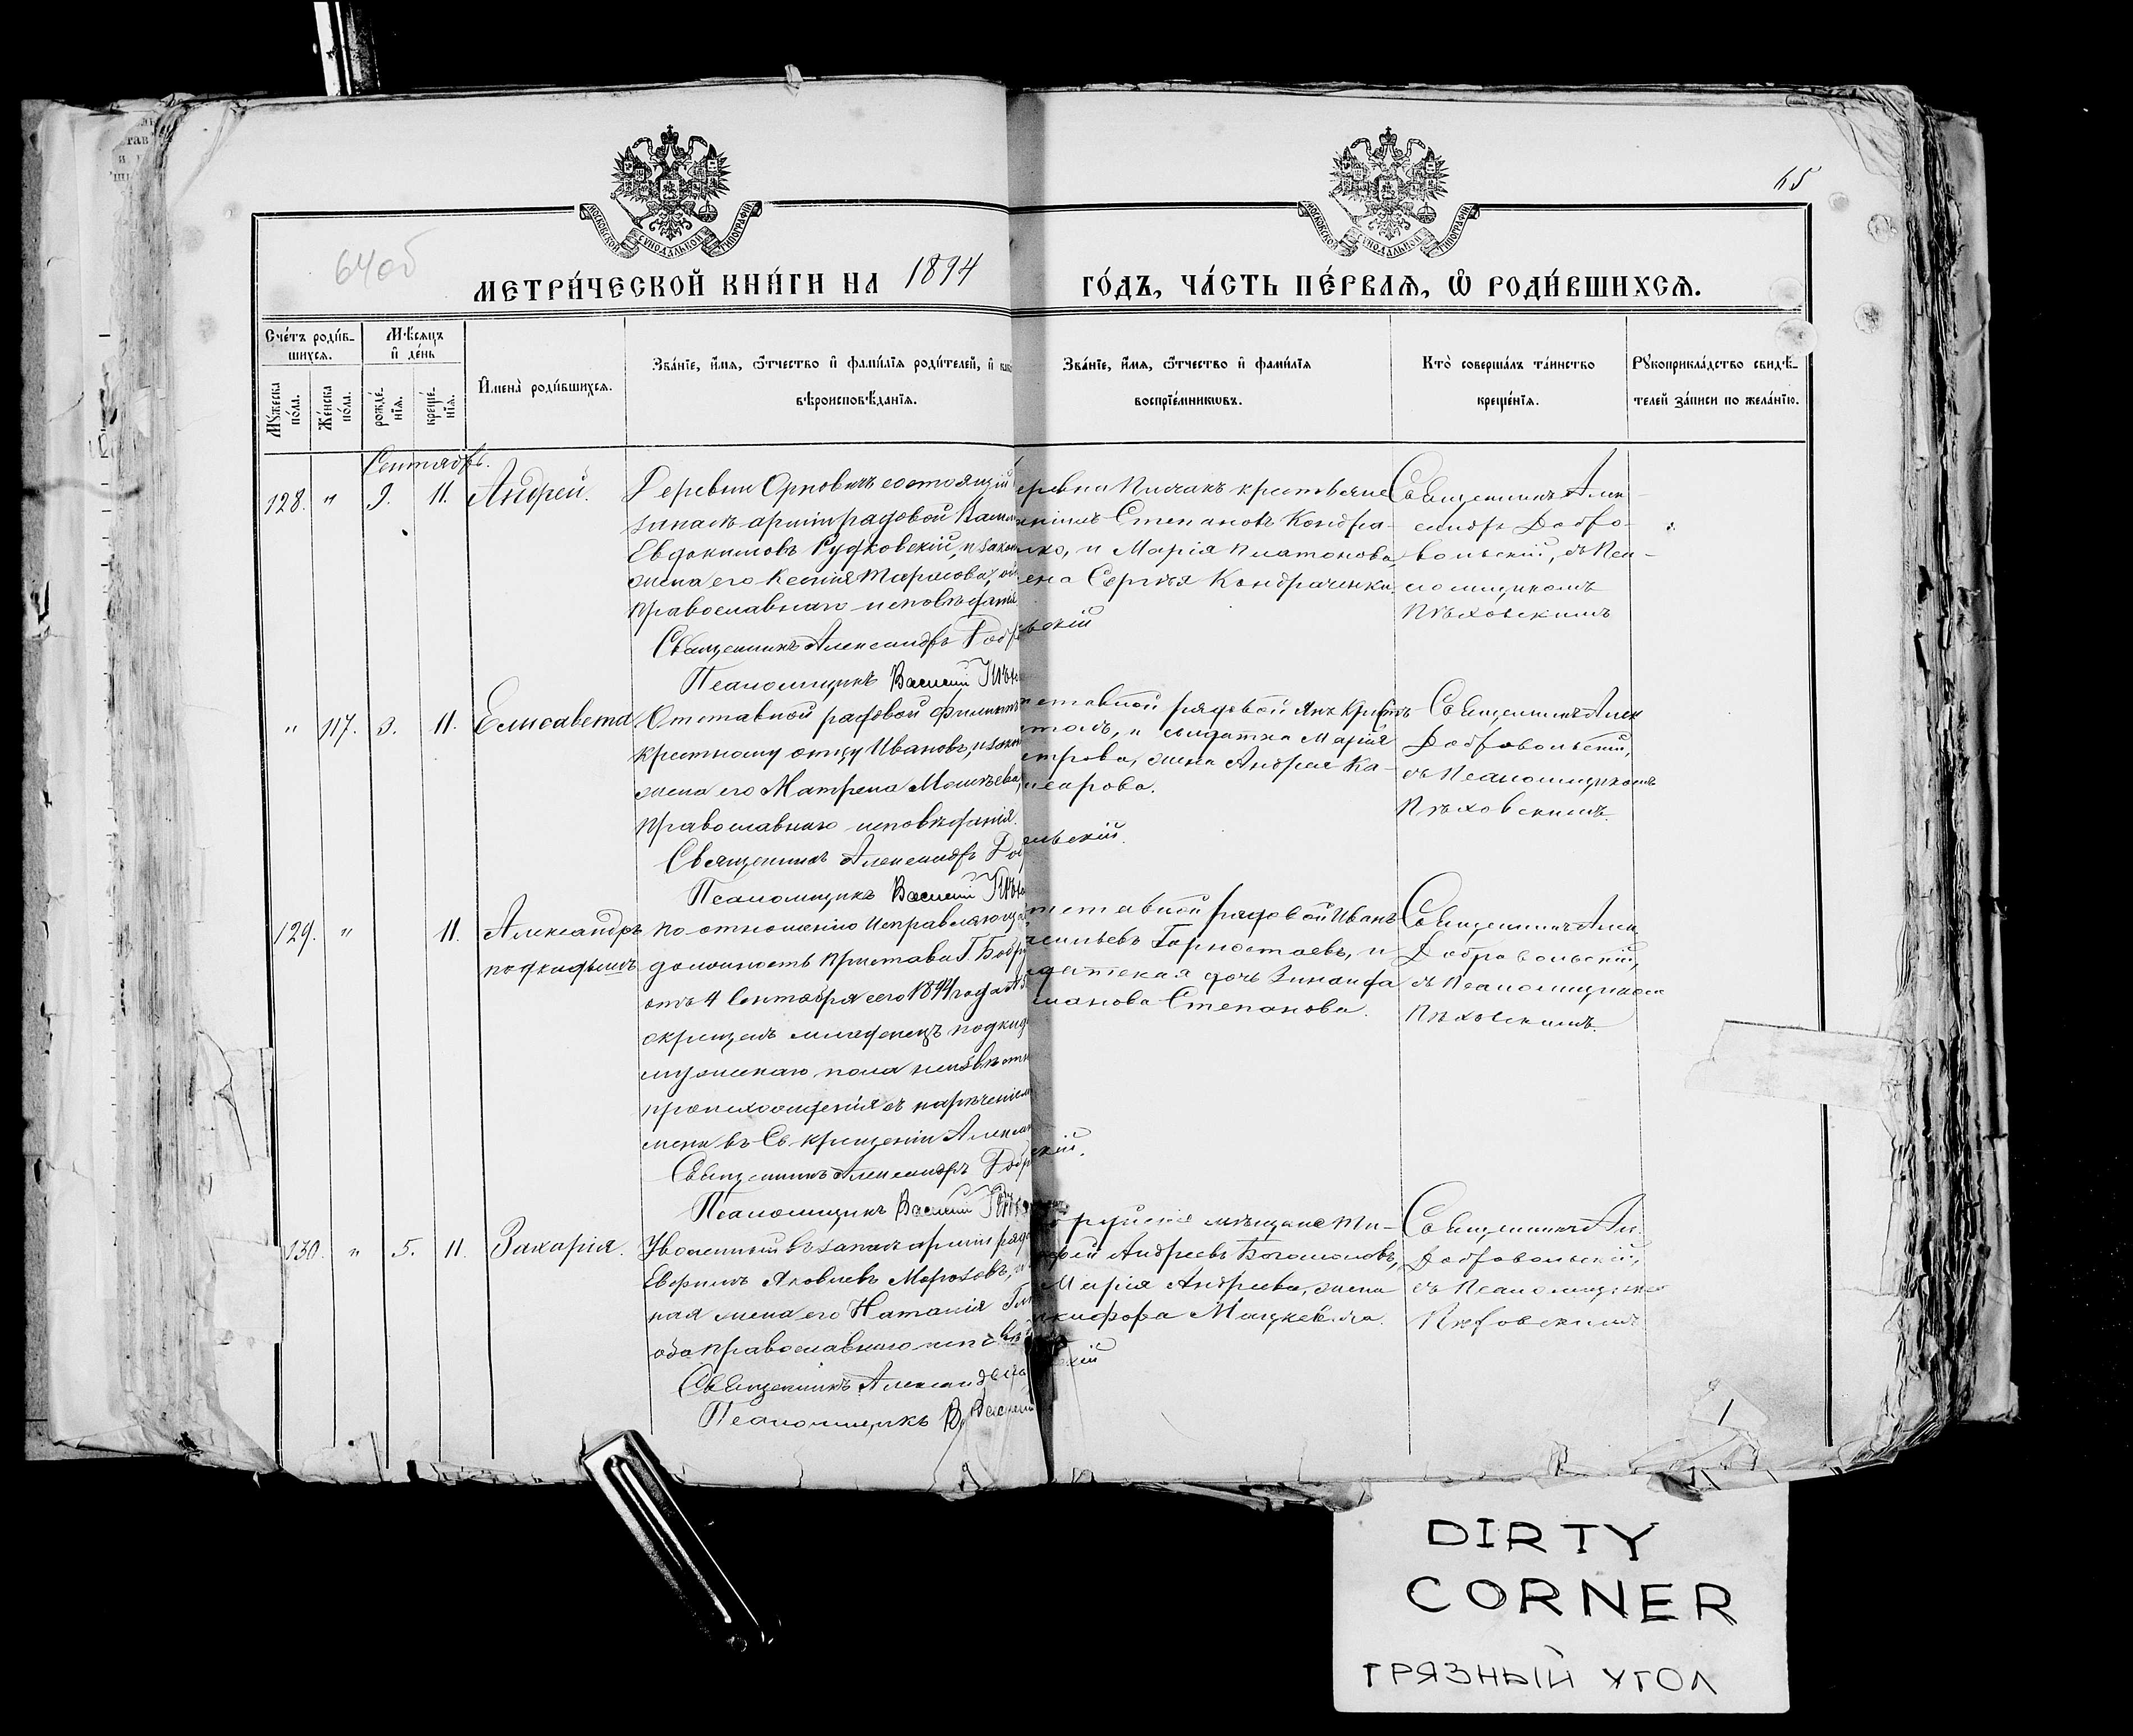 65
64об
МОСКОВСКОЙ СѴНОДАЛЬНОЙ ТИПОГРАФІИ
МОСКОВСКОЙ СѴНОДАЛЬНОЙ ТИПОГРАФІИ
МЕТРИ́ЧЕСКОЙ КНИ́ГИ НА 1894
ГО́ДЪ, ЧА́СТЬ ПЕ́РВАЯ, Ѡ РОДИ́ВШИХСЯ.
Сче́тъ роди́в-
шихся.
Мѣ́сяцъ
и де́нь
Му́жеска по́ла.
Же́нска по́ла.
рожде́-
нїя.
креще́-
нїя.
Имена̀ роди́вшихся.
Зва́нїе, и́мя, ѻ҆́тчество и фами́лїя роди́телей, и
вѣроисповѣ́данїя.
Зва́нїе, и́мя, ѻ҆́тчество и фами́лїя
воспрїе́мниковъ.
Кто̀ соверша́лъ та́инство
креще́нїя.
Рꙋкоприкла́дство свидѣ́-
телей за́писи по жела́нїю.
Сентябрь.
128. " 9. 11. Андрей.
Деревни состоящій
запасѣ арміи рядовой
Евдокимовъ Рудковскій, и закон
жена его Ксенія Тарасова,
православнаго исповѣданія
Священникъ Александръ Добр
Псаломщикъ Василій
крестьяне
Степановъ Кондра-
ко, и Марія Платонова,
ена Сергѣя Кондраченки.
вскій
Священникъ Алек-
сандръ Добро-
вольскій, съ Пса-
ломщикомъ
Пѣховскимъ
" 117. 3. 11. Елисавета
Отставной рядовой Филиппъ
крестному отцу Ивановъ, и закон
жена его Матрена Моисѣева,
православнаго исповѣданія.
Священникъ Александръ Доб
Псаломщикъ Василій
тставной рядовой
и солдатка Марія
етрова, жена Андрея Ка-
сарова.
ольскій.
Священникъ Алек
Добровольскій,
съ Псаломщикомъ
Пѣховскимъ.
129. " 11. Александръ
подкидышъ
По отношенію исправляюща
должность Пристава Г. Бобру
отъ 4 Сентября сего 1894 года
окрещенъ младенецъ подкид
мужескаго пола неизвѣстн
происхожденія съ нареченіем
мени въ Св. крещеніи Алекса
Священникъ Александръ Добр
Псаломщикъ Василій
тставной рядовой Иванъ
асильевъ Горностаевъ, и
датская дочь Зинаида
манова Степанова.
скій.
Священникъ Алек
Добровольскій,
съ Псаломщикомъ
Пѣховскимъ.
130. " 5. 11. Захарія.
Уволенный въ запасъ арміи рядо
Евфимъ Яковлевъ Морозовъ, и
ная жена его Наталія
оба православнаго
Священникъ Александръ
Псаломщикъ Василій
обруйскіе мѣщане Ти-
офей Андреевъ Богомоловъ,
Марія Андреева, жена
икифора Мацкевича.
скій
Священникъ Ал
Добровольскій,
съ Псаломщико
Пѣховскимъ
DIRTY
CORNER
ГРЯЗНЫЙ УГОЛ